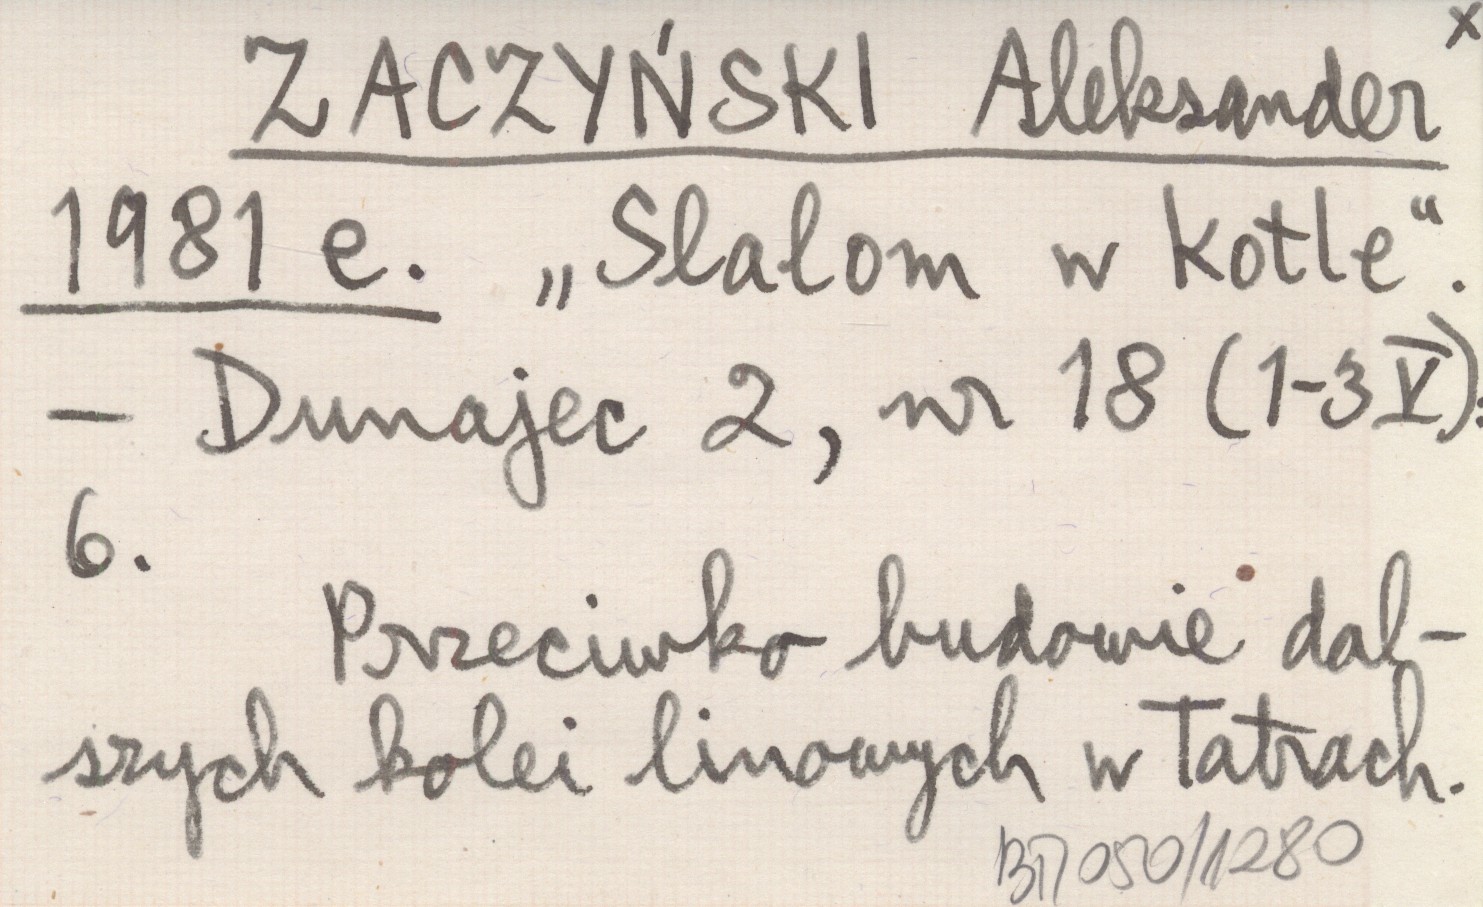 x
ZACZYŃSKI Aleksander
1981 e. „Slalom w Kotle“.
— Dunajec 2, nr 18 (1-3 V):
6.
Przeciwko budowie dal-
szych kolei linowych w Tatrach.
BT/050/1280